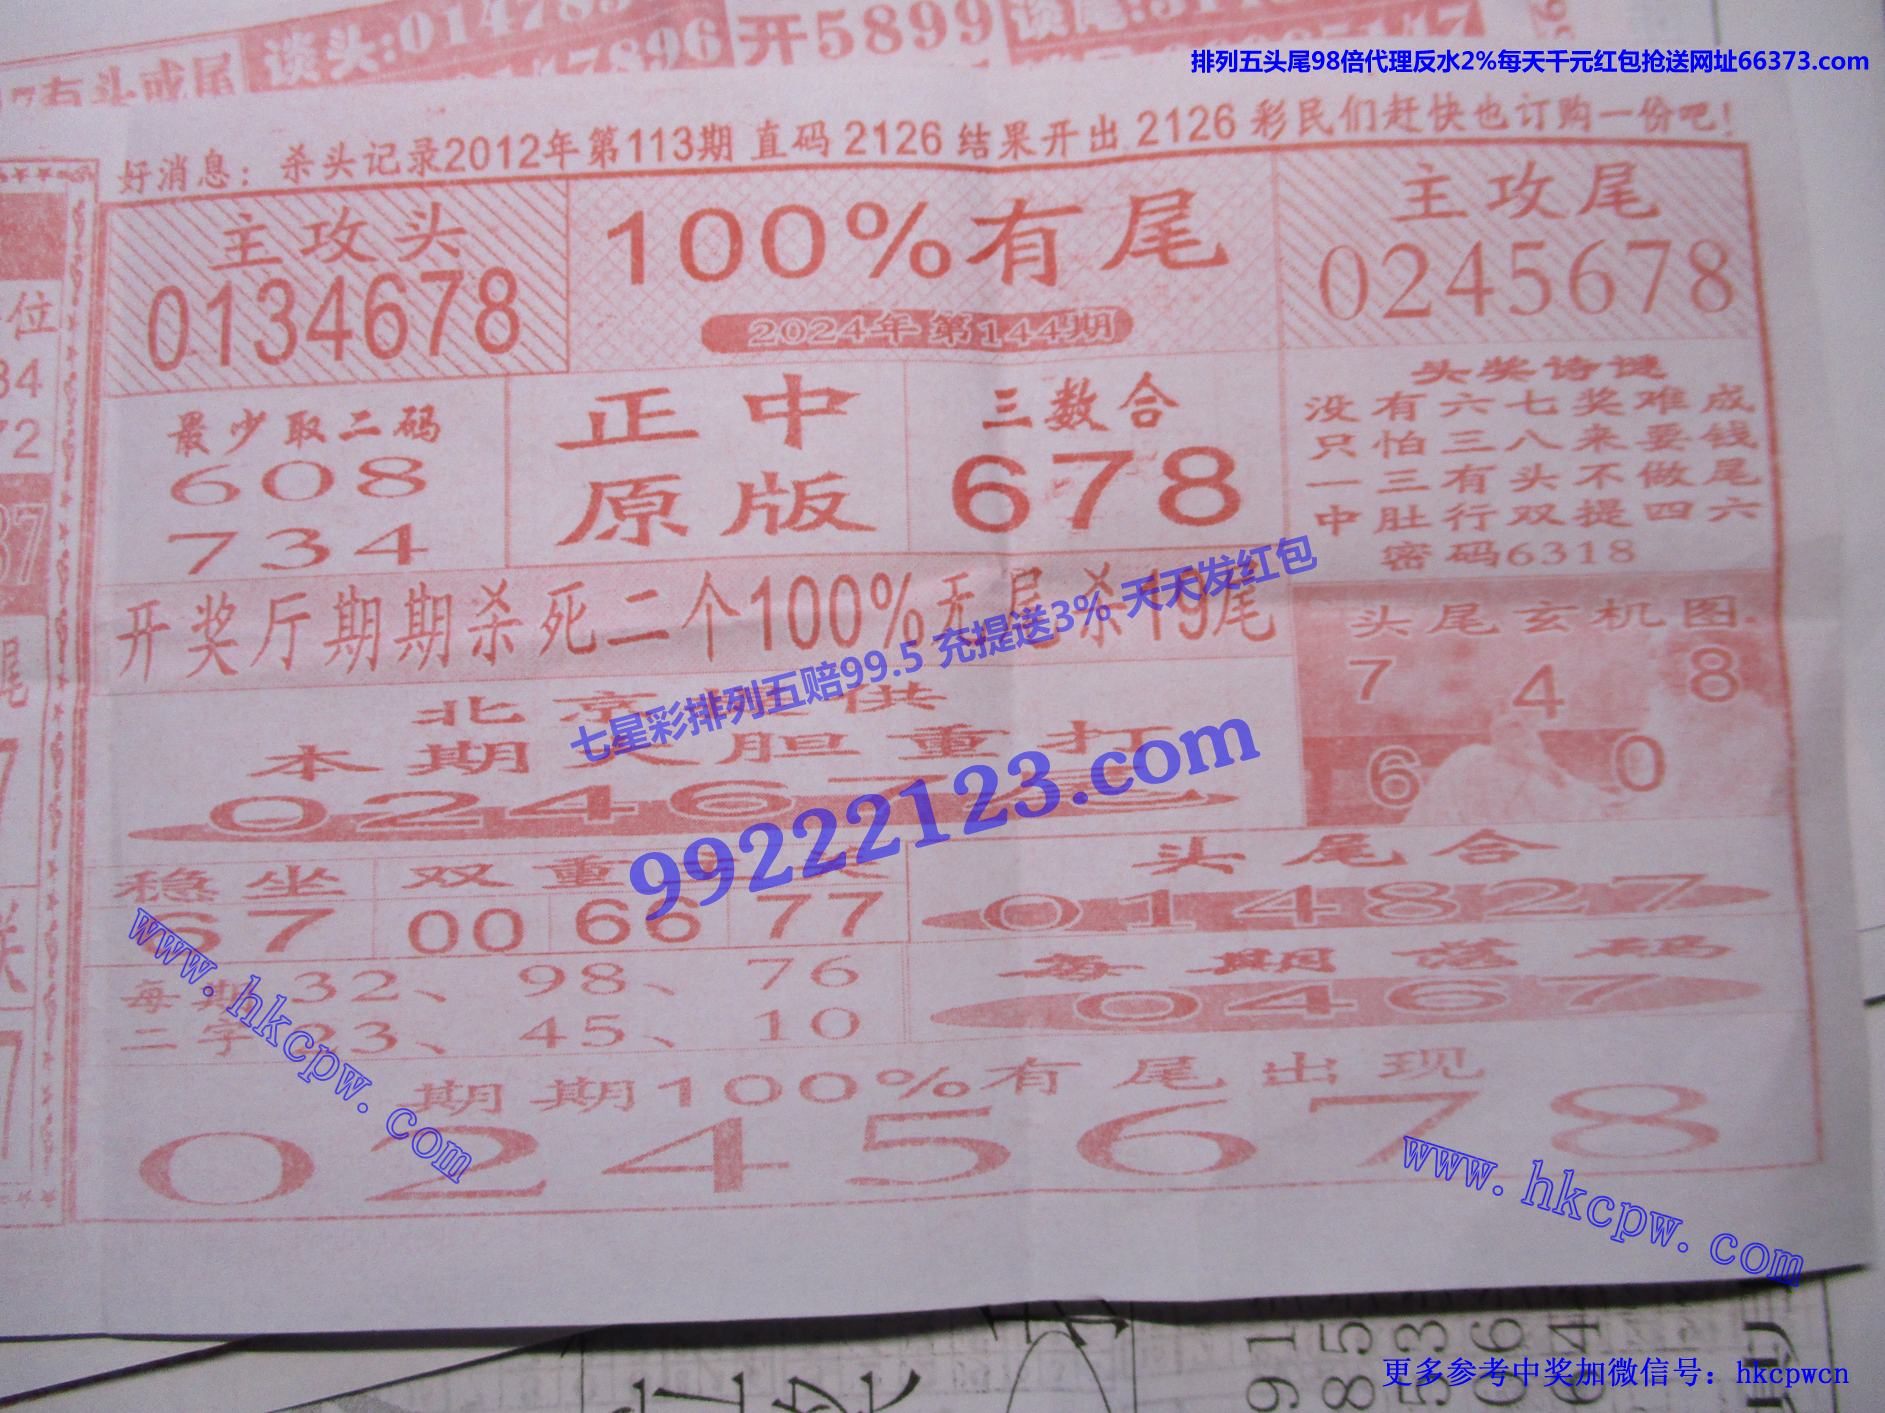 谈头:014789
7896
开5899
7有头或尾
排列五头尾98倍代理反水2%每天千元红包抢送网址66373.com
好消息：杀头记录2012年第113期 直码 2126 结果开出 2126 彩民们赶快也订购一份吧！
主攻头
0134678
100%有尾
2024年 第144期
主攻尾
0245678
最少取二码
608
734
正中
原版
三数合
678
头奖诗谜
没有六七奖难成
只怕三八来要钱
一三有头不做尾
中肚行双提四六
密码6318
开奖厅期期杀死二个100%无尾杀19尾
头尾玄机图
7 4 8
6 0
北京提供
七星彩排列五赔99.5 充提送3% 天天发红包
99222123.com
稳坐
67
双重
00 66 77
头尾合
014827
每期
二字
32、 98、 76
23、 45、 10
每期落码
0467
期期100%有尾出现
0245678
www.hkcpw.com
www.hkcpw.com
更多参考中奖加微信号：hkcpwcn